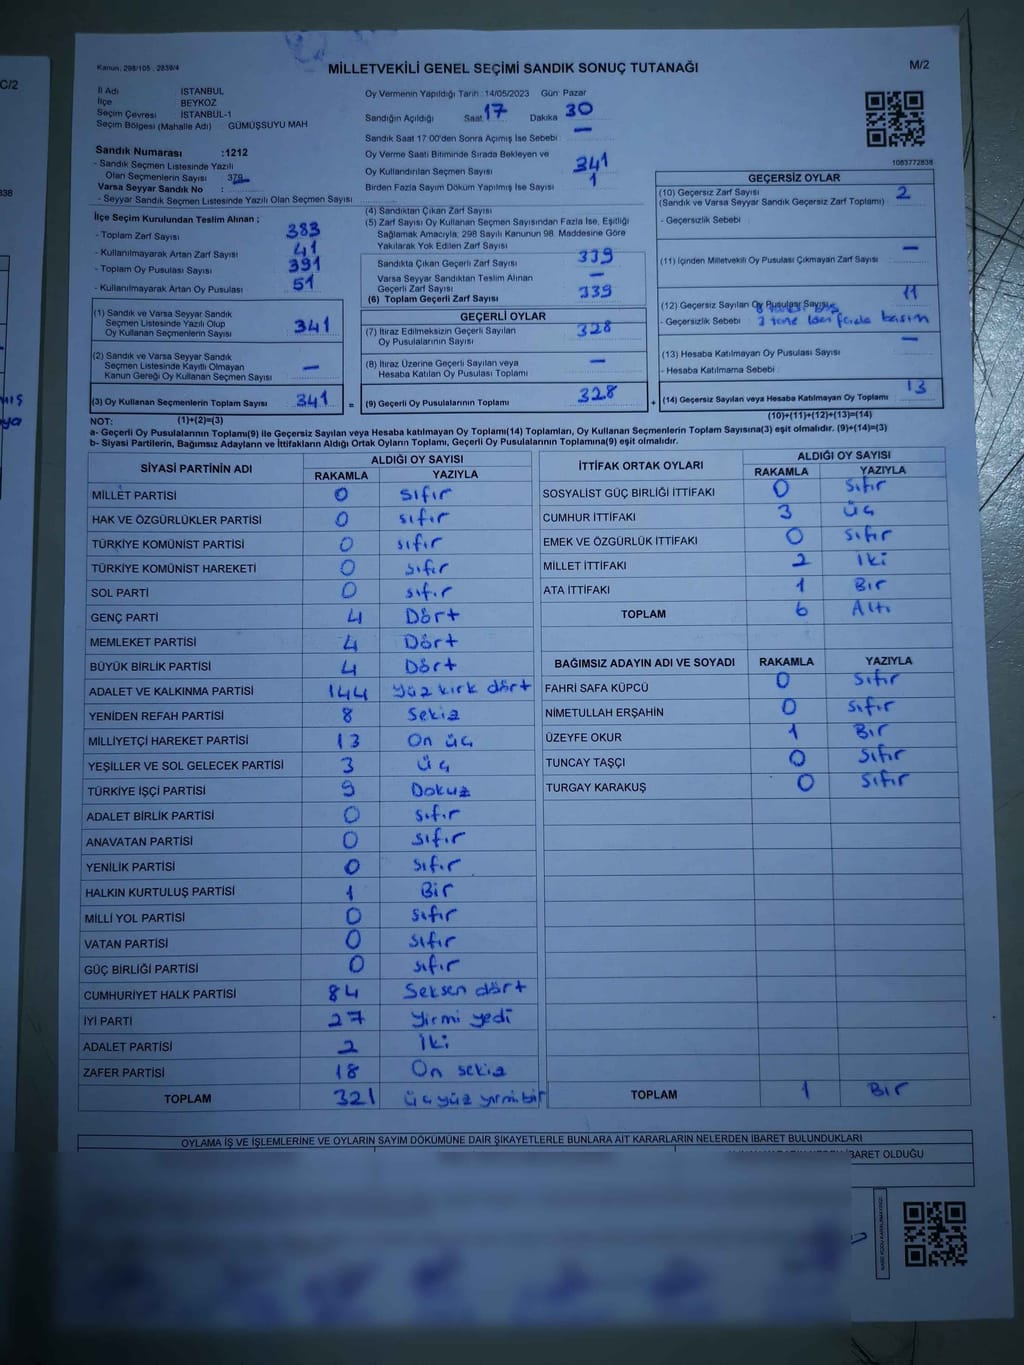 C/2
Kanun, 298/105, 2839/4
MİLLETVEKİLİ GENEL SEÇİMİ SANDIK SONUÇ TUTANAĞI
M/2
İl Adı İSTANBUL
İlçe BEYKOZ
Seçim Çevresi İSTANBUL-1
Seçim Bölgesi (Mahalle Adı) GÜMÜŞSUYU MAH
Sandık Numarası :1212
- Sandık Seçmen Listesinde Yazılı
Olan Seçmenlerin Sayısı 379
Varsa Seyyar Sandık No :
- Seyyar Sandık Seçmen Listesinde Yazılı Olan Seçmen Sayısı
Oy Vermenin Yapıldığı Tarih :14/05/2023 Gün Pazar
Sandığın Açıldığı Saat 17 Dakika 30
Sandık Saat 17:00'den Sonra Açımış İse Sebebi —
Oy Verme Saati Bitiminde Sırada Bekleyen ve
Oy Kullandırılan Seçmen Sayısı 341
Birden Fazla Sayım Döküm Yapılmış İse Sayısı 1
1083772838
İlçe Seçim Kurulundan Teslim Alınan ;
- Toplam Zarf Sayısı 383
- Kullanılmayarak Artan Zarf Sayısı 41
- Toplam Oy Pusulası Sayısı 391
- Kullanılmayarak Artan Oy Pusulası 51
(1) Sandık ve Varsa Seyyar Sandık
Seçmen Listesinde Yazılı Olup
Oy Kullanan Seçmenlerin Sayısı 341
(2) Sandık ve Varsa Seyyar Sandık
Seçmen Listesinde Kayıtlı Olmayan
Kanun Gereği Oy Kullanan Seçmen Sayısı —
(3) Oy Kullanan Seçmenlerin Toplam Sayısı 341 =
(1)+(2)=(3)
(4) Sandıktan Çıkan Zarf Sayısı
(5) Zarf Sayısı Oy Kullanan Seçmen Sayısından Fazla İse, Eşitliği
Sağlamak Amacıyla; 298 Sayılı Kanunun 98. Maddesine Göre
Yakılarak Yok Edilen Zarf Sayısı
Sandıkta Çıkan Geçerli Zarf Sayısı 339
Varsa Seyyar Sandıktan Teslim Alınan
Geçerli Zarf Sayısı —
(6) Toplam Geçerli Zarf Sayısı 339
GEÇERLİ OYLAR
(7) İtiraz Edilmeksizin Geçerli Sayılan
Oy Pusulalarının Sayısı 328
(8) İtiraz Üzerine Geçerli Sayılan veya
Hesaba Katılan Oy Pusulası Toplamı —
(9) Geçerli Oy Pusulalarının Toplamı 328 +
GEÇERSİZ OYLAR
(10) Geçersiz Zarf Sayısı 2
(Sandık ve Varsa Seyyar Sandık Geçersiz Zarf Toplamı)
- Geçersizlik Sebebi
(11) İçinden Milletvekili Oy Pusulası Çıkmayan Zarf Sayısı —
(12) Geçersiz Sayılan Oy Pusulası Sayısı 11
- Geçersizlik Sebebi
(13) Hesaba Katılmayan Oy Pusulası Sayısı —
- Hesaba Katılmama Sebebi
(14) Geçersiz Sayılan veya Hesaba Katılmayan Oy Toplamı 13
(10)+(11)+(12)+(13)=(14)
NOT:
a- Geçerli Oy Pusulalarının Toplamı(9) ile Geçersiz Sayılan veya Hesaba katılmayan Oy Toplamı(14) Toplamları, Oy Kullanan Seçmenlerin Toplam Sayısına(3) eşit olmalıdır. (9)+(14)=(3)
b- Siyasi Partilerin, Bağımsız Adayların ve İttifakların Aldığı Ortak Oyların Toplamı, Geçerli Oy Pusulalarının Toplamına(9) eşit olmalıdır.
SİYASİ PARTİNİN ADI ALDIĞI OY SAYISI
RAKAMLA YAZIYLA
MİLLET PARTİSİ 0 sıfır
HAK VE ÖZGÜRLÜKLER PARTİSİ 0 sıfır
TÜRKİYE KOMÜNİST PARTİSİ 0 sıfır
TÜRKİYE KOMÜNİST HAREKETİ 0 sıfır
SOL PARTİ 0 sıfır
GENÇ PARTİ 4 Dört
MEMLEKET PARTİSİ 4 Dört
BÜYÜK BİRLİK PARTİSİ 4 Dört
ADALET VE KALKINMA PARTİSİ 144 Yüz kırk dört
YENİDEN REFAH PARTİSİ 8 Sekiz
MİLLİYETÇİ HAREKET PARTİSİ 13 On üç
YEŞİLLER VE SOL GELECEK PARTİSİ 3 üç
TÜRKİYE İŞÇİ PARTİSİ 9 Dokuz
ADALET BİRLİK PARTİSİ 0 sıfır
ANAVATAN PARTİSİ 0 sıfır
YENİLİK PARTİSİ 0 sıfır
HALKIN KURTULUŞ PARTİSİ 1 Bir
MİLLİ YOL PARTİSİ 0 sıfır
VATAN PARTİSİ 0 sıfır
GÜÇ BİRLİĞİ PARTİSİ 0 sıfır
CUMHURİYET HALK PARTİSİ 84 Seksen dört
İYİ PARTİ 27 Yirmi yedi
ADALET PARTİSİ 2 İki
ZAFER PARTİSİ 18 On sekiz
TOPLAM 321 üçyüz yirmibir
İTTİFAK ORTAK OYLARI ALDIĞI OY SAYISI
RAKAMLA YAZIYLA
SOSYALİST GÜÇ BİRLİĞİ İTTİFAKI 0 Sıfır
CUMHUR İTTİFAKI 3 üç
EMEK VE ÖZGÜRLÜK İTTİFAKI 0 Sıfır
MİLLET İTTİFAKI 2 İki
ATA İTTİFAKI 1 Bir
TOPLAM 6 Altı
BAĞIMSIZ ADAYIN ADI VE SOYADI RAKAMLA YAZIYLA
FAHRİ SAFA KÜPCÜ 0 Sıfır
NİMETULLAH ERŞAHİN 0 Sıfır
ÜZEYFE OKUR 1 Bir
TUNCAY TAŞÇI 0 Sıfır
TURGAY KARAKUŞ 0 Sıfır
TOPLAM 1 Bir
OYLAMA İŞ VE İŞLEMLERİNE VE OYLARIN SAYIM DÖKÜMÜNE DAİR ŞİKAYETLERLE BUNLARA AİT KARARLARIN NELERDEN İBARET BULUNDUKLARI
İBARET OLDUĞU